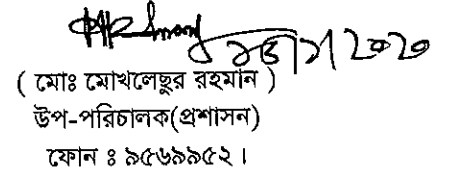 ( মোঃ মোখলেছুর রহমান )
উপ-পরিচালক(প্রশাসন)
ফোন ঃ ৯৫৬৯৯৫২।